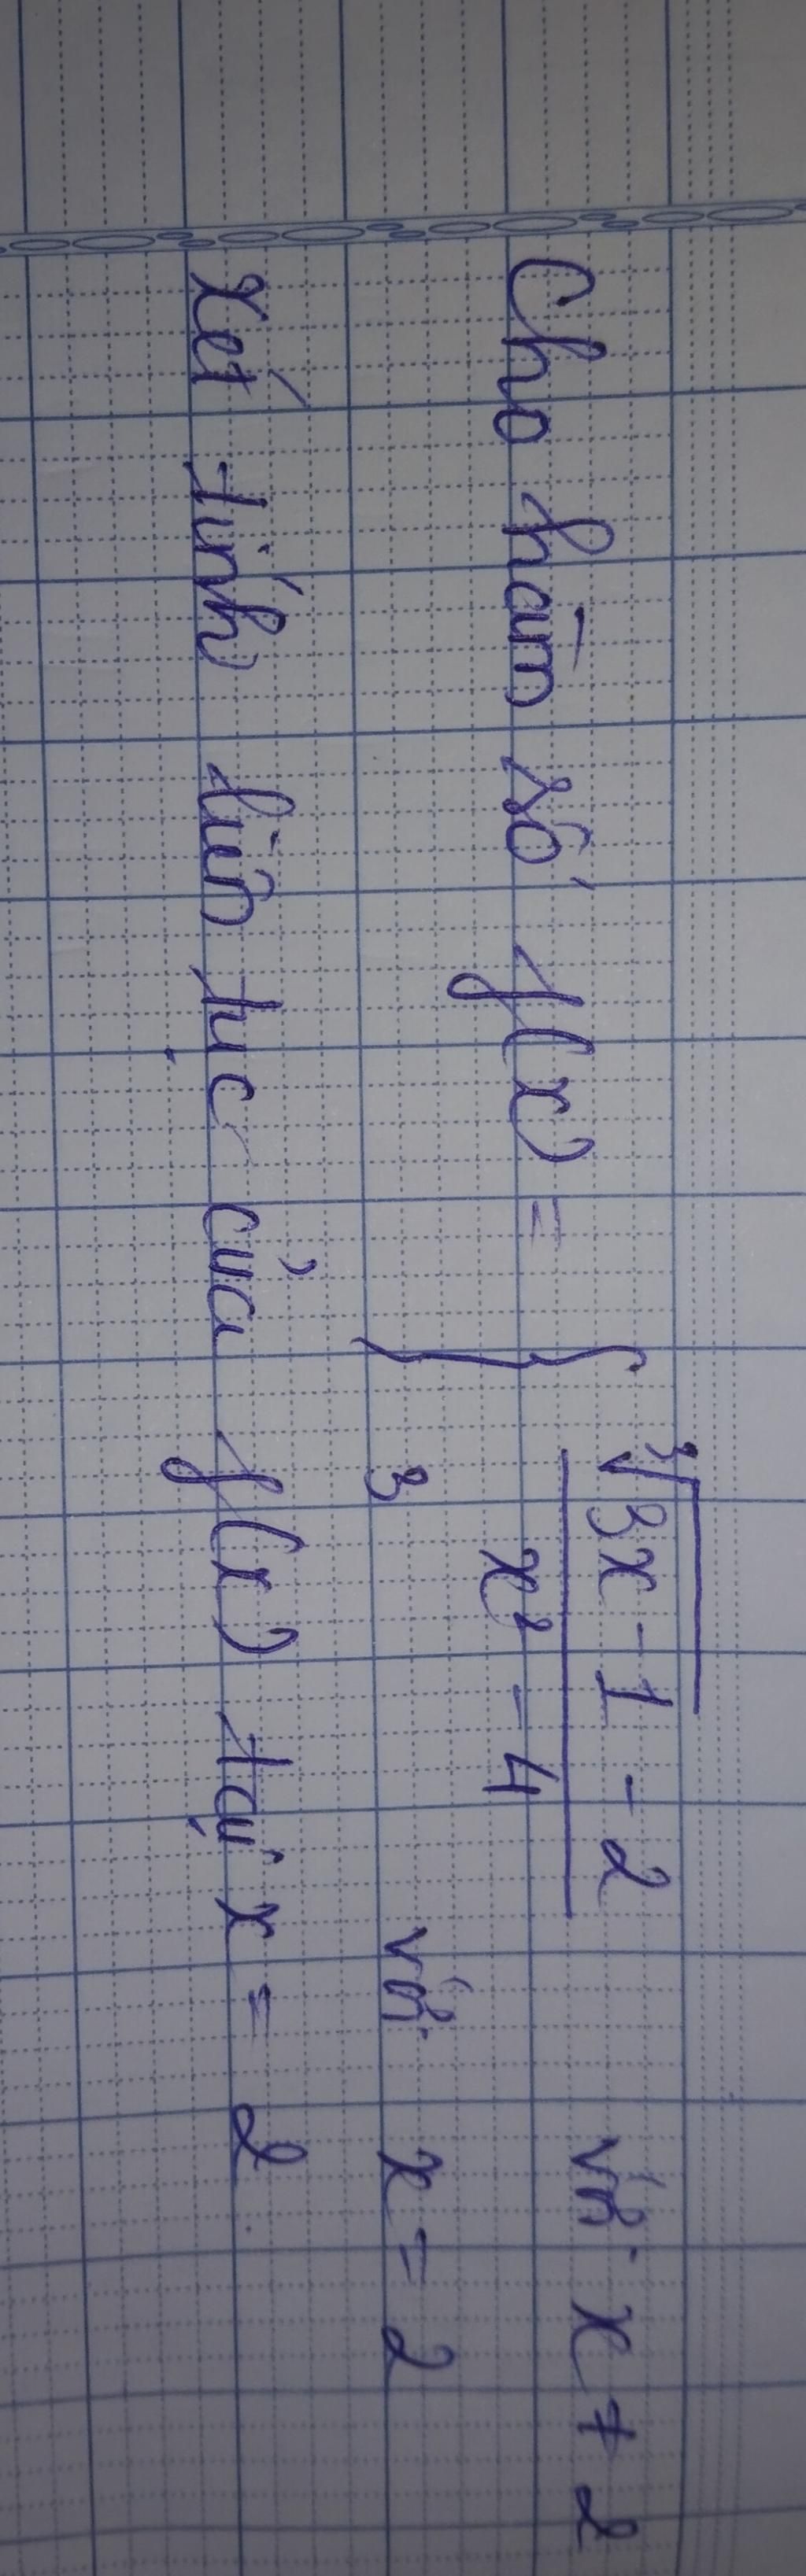 Cho hàm số f(x) = { (∛(3x - 1) - 2) / (x² - 4) với x ≠ 2
3 với x = 2
Xét tính liên tục của f(x) tại x = 2